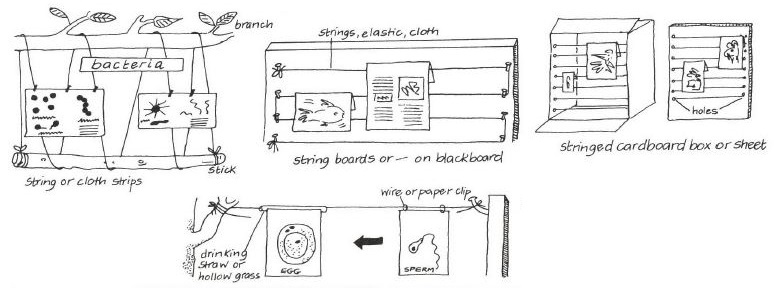 branch
bacteria
stick
string or cloth strips
strings, elastic, cloth
string boards or — on blackboard
holes
stringed cardboard box or sheet
wire or paper clip
drinking
straw or
hollow grass
EGG
SPERM